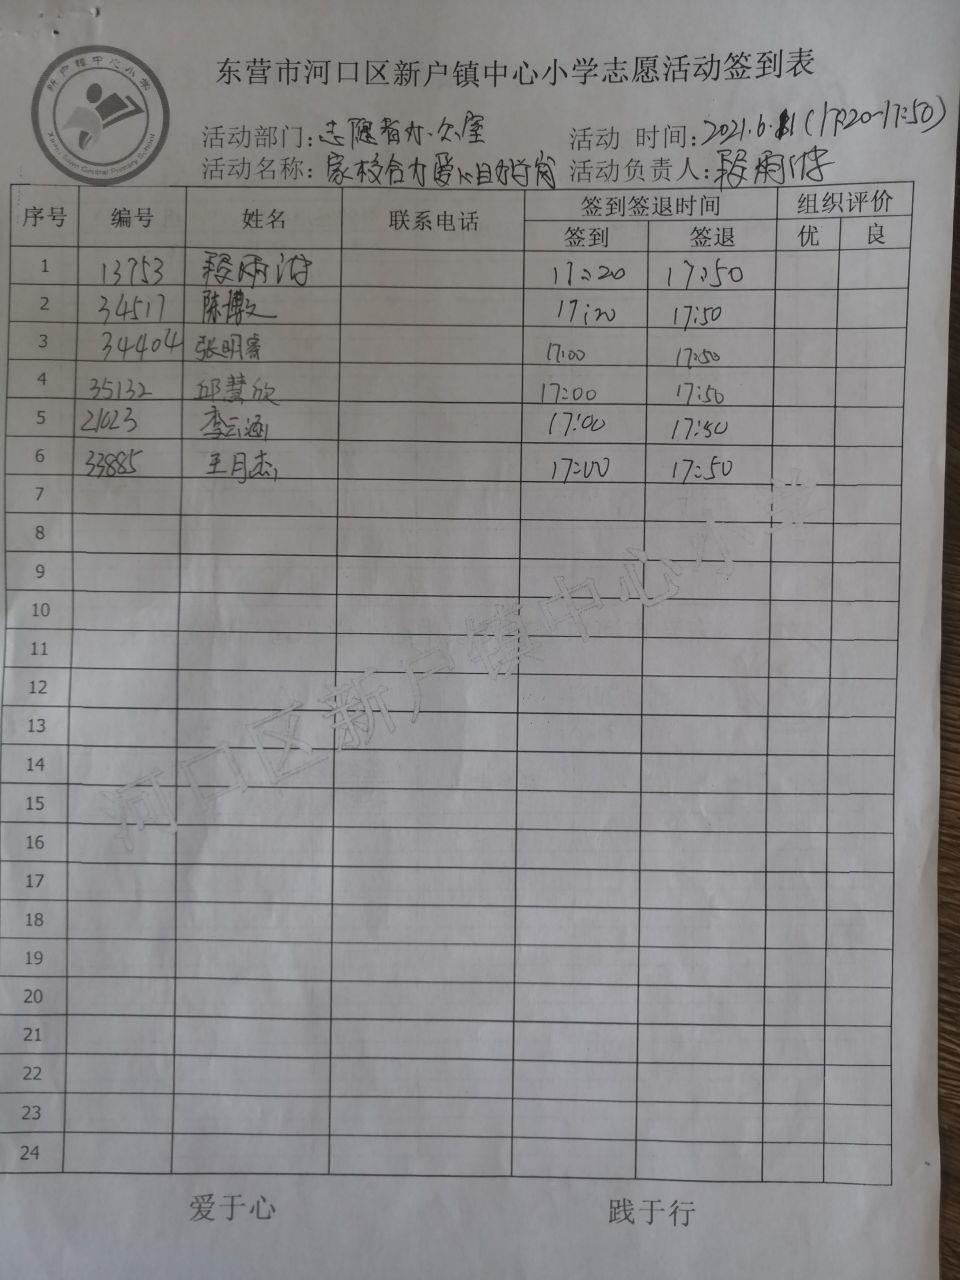 新户镇中心小学
Xinhu Town Central Primary School
东营市河口区新户镇中心小学志愿活动签到表
活动部门:志愿者办公室 活动 时间:2021.6.11(17:20-17:50)
活动名称:家校合力爱心 活动负责人:段雨
序号 编号 姓名 联系电话 签到签退时间 组织评价
签到 签退 优 良
1 13753 段雨 17:20 17:50
2 34517 陈博文 17:20 17:50
3 34404 张明 17:00 17:50
4 35132 邱慧欣 17:00 17:50
5 21023 李云涵 17:00 17:50
6 33885 王月杰 17:00 17:50
7
8
9
10
11
12
13
14
15
16
17
18
19
20
21
22
23
24
河口区新户镇中心小学
爱于心 践于行